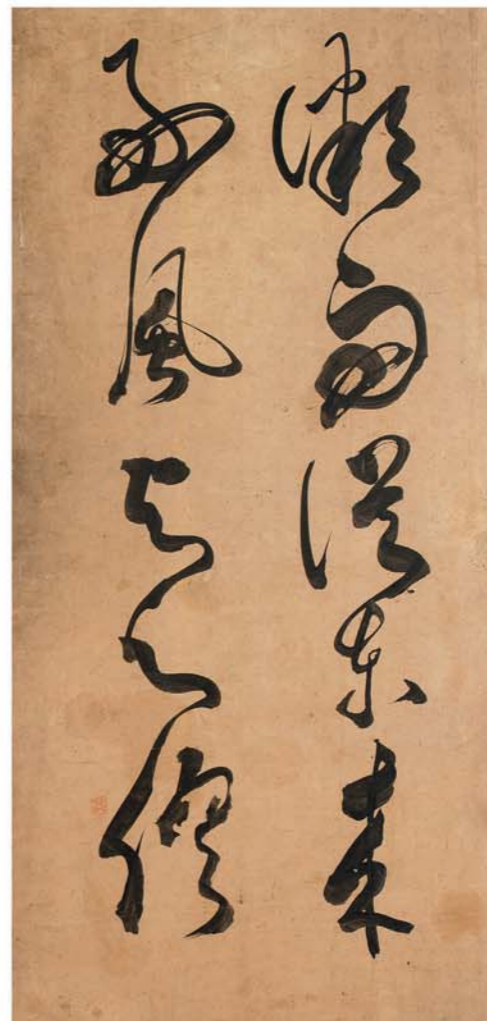 微雨從東來
好風與之俱